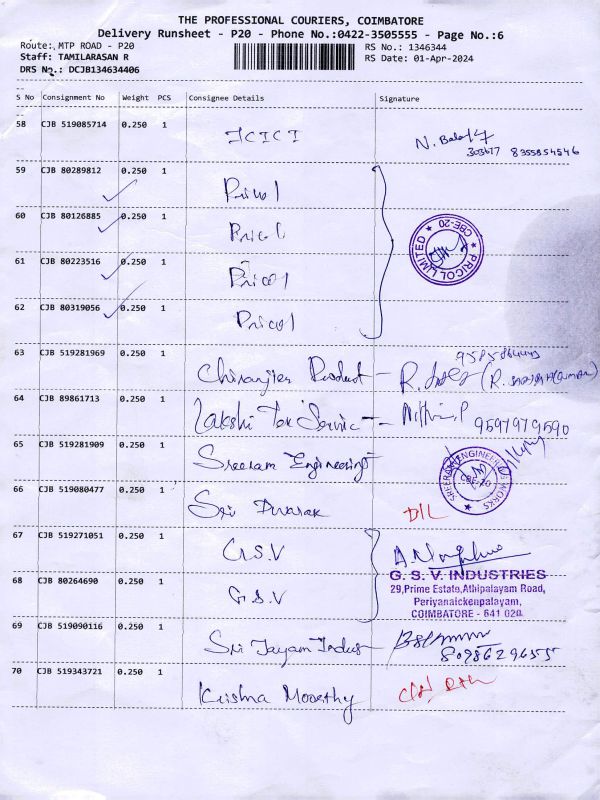 THE PROFESSIONAL COURIERS, COIMBATORE
Delivery Runsheet - P20 - Phone No.:0422-3505555 - Page No.:6
Route: MTP ROAD - P20
RS No.: 1346344
Staff: TAMILARASAN R
RS Date: 01-Apr-2024
DRS No.: DCJB134634406
S No Consignment No Weight PCS Consignee Details Signature
58 CJB 519085714 0.250 1 ICICI N.
303617 8355854546
59 CJB 80289812 0.250 1 Pricol
60 CJB 80126885 0.250 1 Pricol
PRICOL LIMITED ★ CBE-20 ★
61 CJB 80223516 0.250 1 Pricol
62 CJB 80319056 0.250 1 Pricol
63 CJB 519281969 0.250 1 Product - R.
64 CJB 89861713 0.250 1 Lakshi Tax Service - Nithin.P 9597979590
65 CJB 519281909 0.250 1 Sreeram Engineerings
SREERAM ENGINEERING WORKS ★ CBE-20
66 CJB 519080477 0.250 1 Sri Dwarak D/L
67 CJB 519271051 0.250 1 G.S.V
G. S. V. INDUSTRIES
68 CJB 80264690 0.250 1 G.S.V
29,Prime Estate,Athipalayam Road,
Periyanaickenpalayam,
COIMBATORE - 641 020.
69 CJB 519090116 0.250 1 Sri Jayam Indus
8098629655
70 CJB 519343721 0.250 1 Krishna Moorthy